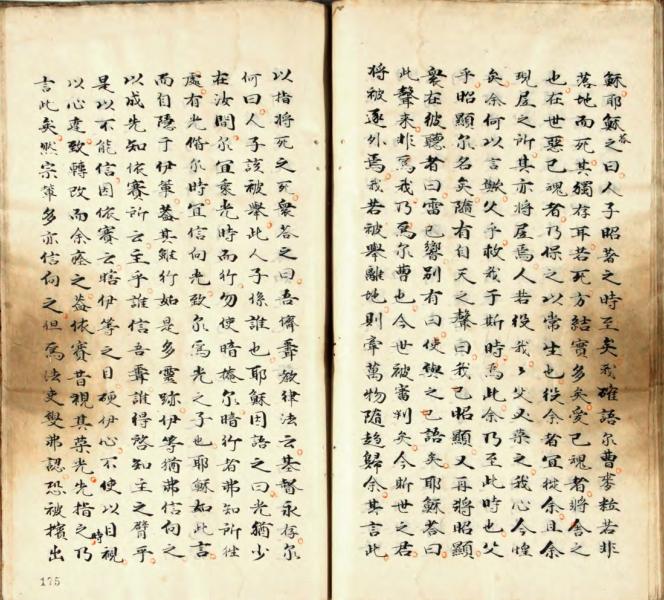 穌耶穌答之曰人子昭著之時至矣我確語尔曹麥粒若非
落地而死其獨存耳若死方結實多矣愛己魂者將舍之
也在世惡己魂者乃保之以常生也役余者宜從余且余
現居之所其亦將居焉人若役我我父又榮之我心今惶
矣余何以言歟父乎救我于斯時焉此余乃至此時也父
乎昭顯尔名矣隨有自天之聲曰我已昭顯又再將昭顯
眾在彼聽者曰雷已響別有曰使與之已語矣耶穌答曰
此聲來非為我乃為尔曹也今世被審判矣今斯世之君
將被逐外焉我若被舉離地則牽萬物隨趋歸余其言此
以指將死之死眾答之曰吾儕聽教律法云基督永存尔
何曰人子該被舉此人子係誰也耶穌因語之曰光猶少
在汝間尔宜乘光時而行勿使暗掩尔暗行者弗知所往
處有光偕尔時宜信向光致尔為光之子也耶穌如此言
而自隱于伊等蓋其雖行如是多靈跡伊等猶弗信向之
以成先知依賽所云主乎誰信吾聽誰得啓知主之臂乎
是以不能信因依賽云瞎伊等之目硬伊心不使以目視
以心達致轉改而余痊之蓋依賽昔視其榮光先指之時乃
言此矣然宗第多亦信向之但為法吏叟弗認恐被擯出
175